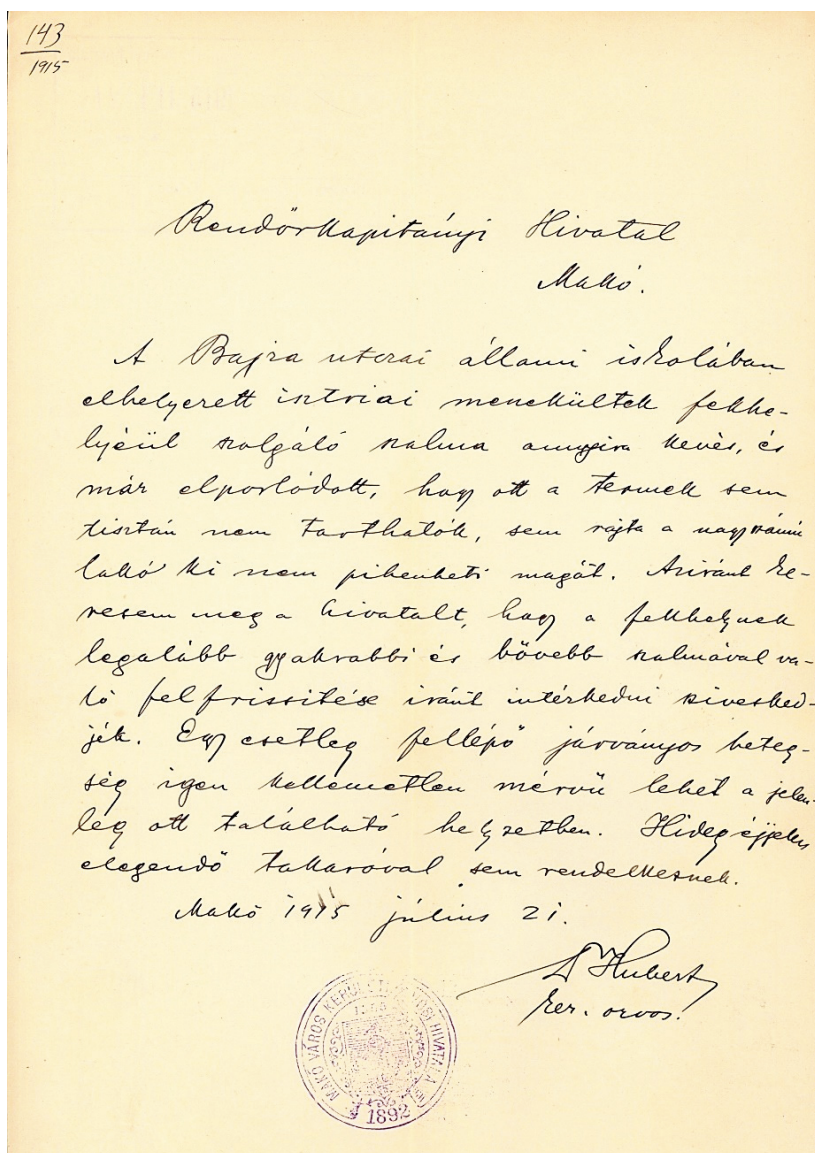 143
1915
Rendőrkapitányi Hivatal
Makó.
A Bajza utcai állami iskolában
elhelyezett isztriai menekültek fekhe-
lyéül szolgáló szalma annyira kevés, és
már elporlódott, hogy ott a termek sem
tisztán nem tarthatók, sem rajta a nagyszámú
lakó ki nem pihenheti magát. Aziránt ke-
resem meg a hivatalt, hogy a fekhelynek
legalább gyakrabbi és bővebb szalmával va-
ló felfrissitése iránt intézkedni sziveskead-
jék. Egy esetleg fellépő járványos beteg-
ség igen kellemetlen mérvü lehet a jelen-
leg ott található helyzetben. Hideg éjjelen
elegendő takaróval sem rendelkeznek.
Makó 1915 július 21.
Dr Hubert
ker. orvos.
MAKÓ VÁROS KERÜLETI ORVOSI HIVATALA
1892